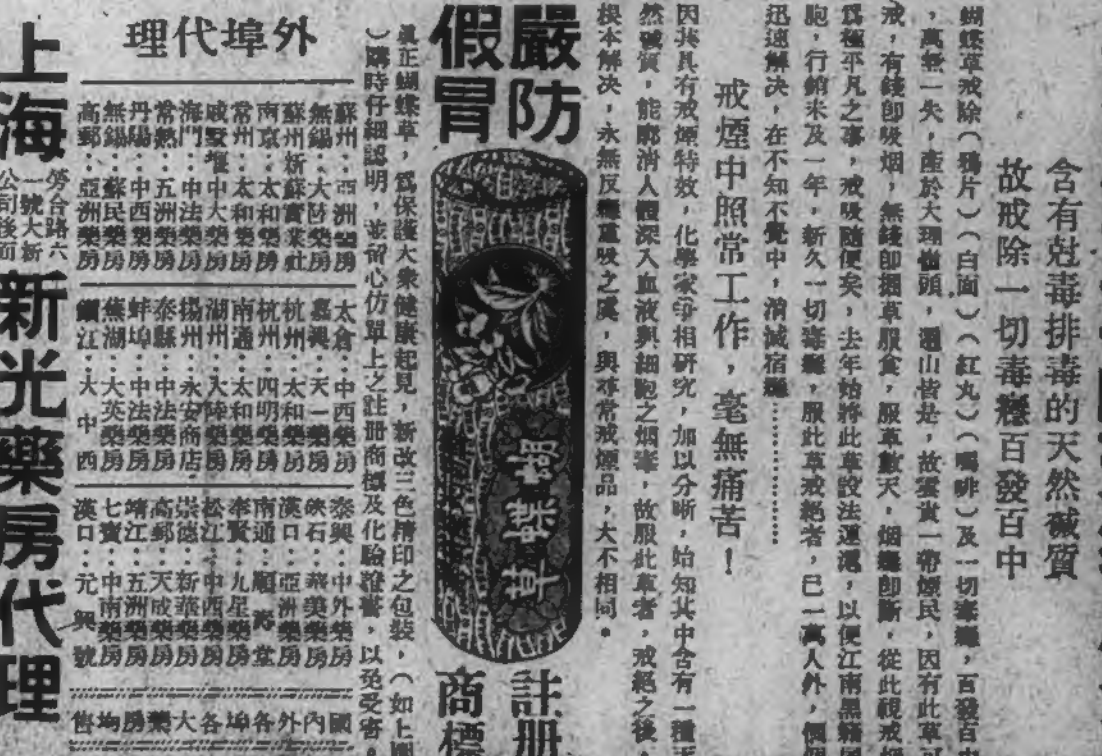 含有尅毒排毒的天然礆質
故戒除一切毒癮百發百中
蝴蝶草戒除(鴉片)(白面)(紅丸)(嗎啡)及一切毒癮,百發百中
,萬無一失,產於大理山頭,遍山皆是,故雲貴一帶煙民,因有此草
戒,有錢卽吸烟,無錢卽掘草服食,服草數天,烟癮卽斷,從此視戒烟
爲極平凡之事,戒吸隨便矣,去年始將此草設法運滬,以便江南黑籍同
胞,行銷未及一年,新久一切毒癮,服此草戒絕者,已一萬人外,
迅速解决,在不知不覺中,消滅宿癮…………
戒煙中照常工作,毫無痛苦!
因其具有戒煙特效,化學家卽相研究,加以分晰,始知其中含有一種天
然礆質,能廓消人體深入血液與細胞之烟毒,故服此草者,戒絕之後,
根本解决,永無反癮重吸之虞,與尋常戒煙品,大不相同。
嚴防
假冒
蝴蝶草
註册
商標
眞正蝴蝶草,爲保護大衆健康起見,新改三色精印之包裝,(如上圖
)購時仔細認明,並留心仿單上之註册商標及化驗證書,以免受害。
外埠代理
蘇州:亞洲藥房
無錫:大陸藥房
蘇州新蘇實業社
南京:太和藥房
常州:太和藥房
戚墅堰中大藥房
海門:中法藥房
常熟:五洲藥房
丹陽:中西藥房
無錫:蘇民藥房
高郵:亞洲藥房
太倉:中西藥房
嘉興:天一藥房
杭州:太和藥房
杭州:四明藥房
南通:太和藥房
湖州:大陸藥房
揚州:永安商店
泰縣:中法藥房
蚌埠:中法藥房
蕪湖:大英藥房
鎭江:大中西
泰興:中外藥房
硤石:華美藥房
漢口:亞洲藥房
南通:順壽堂
奉賢:九星藥房
松江:中西藥房
崇德:新華藥房
高郵:天成藥房
靖江:五洲藥房
七寶:中南藥房
漢口:元興號
國內外各埠各大藥房均售
上海
勞合路六
一號大新
公司後面
新光藥房代理